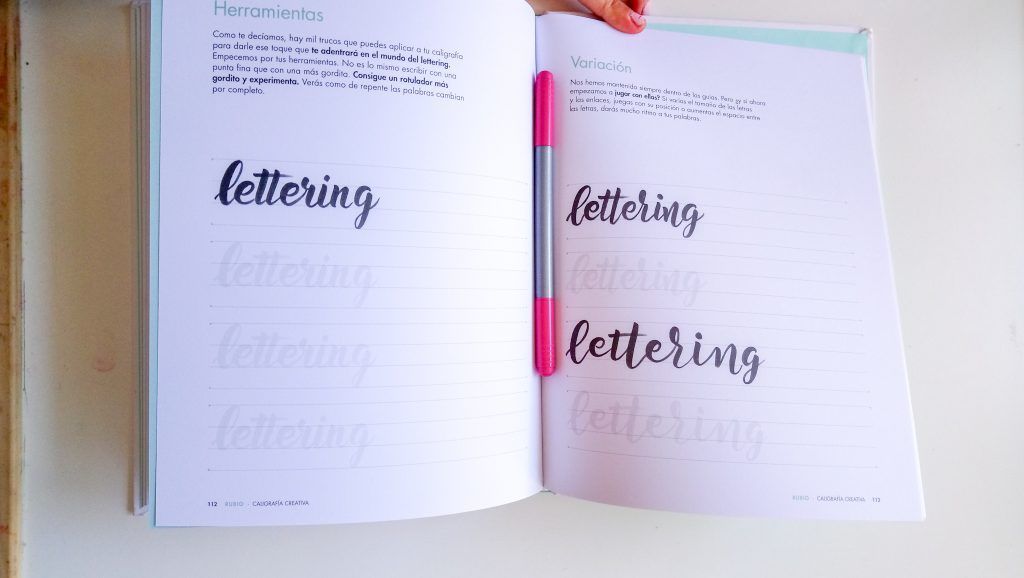 Herramientas
Como te decíamos, hay mil trucos que puedes aplicar a tu caligrafía
para darle ese toque que te adentrará en el mundo del lettering.
Empecemos por tus herramientas. No es lo mismo escribir con una
punta fina que con una más gordita. Consigue un rotulador más
gordito y experimenta. Verás como de repente las palabras cambian
por completo.
lettering
lettering
lettering
lettering
112 RUBIO - CALIGRAFÍA CREATIVA
Variación
Nos hemos mantenido siempre dentro de las guías. Pero ¿y si ahora
empezamos a jugar con ellas? Si varías el tamaño de las letras
y los enlaces, juegas con su posición o aumentas el espacio entre
las letras, darás mucho ritmo a tus palabras.
lettering
lettering
lettering
lettering
RUBIO - CALIGRAFÍA CREATIVA 113